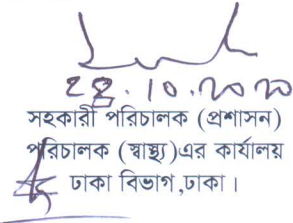 ২৪.১০.২০২০
সহকারী পরিচালক (প্রশাসন)
পরিচালক (স্বাস্থ্য)এর কার্যালয়
ঢাকা বিভাগ,ঢাকা।